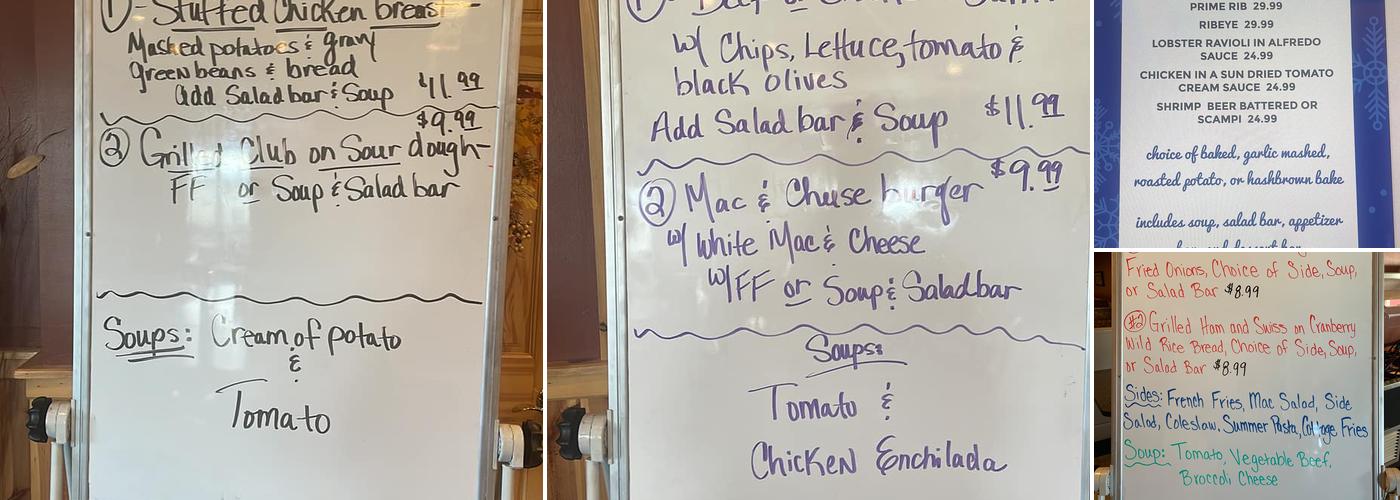 1) - Stuffed Chicken breast
Mashed potatoes & gravy
green beans & bread
add Salad bar & Soup $11.99
$9.99
2 Grilled Club on Sour dough-
FF or Soup & Salad bar
Soups: Cream of potato
&
Tomato
w/ Chips, Lettuce, tomato &
black olives
Add Salad bar & Soup $11.99
$9.99
2 Mac & Cheese burger
w/ White Mac & Cheese
w/ FF or Soup & Salad bar
Soups:
Tomato &
Chicken Enchilada
PRIME RIB 29.99
RIBEYE 29.99
LOBSTER RAVIOLI IN ALFREDO
SAUCE 24.99
CHICKEN IN A SUN DRIED TOMATO
CREAM SAUCE 24.99
SHRIMP BEER BATTERED OR
SCAMPI 24.99
choice of baked, garlic mashed,
roasted potato, or hashbrown bake
includes soup, salad bar, appetizer
Fried Onions, Choice of Side, Soup,
or Salad Bar $8.99
#2 Grilled Ham and Swiss on Cranberry
Wild Rice Bread, Choice of Side, Soup,
or Salad Bar $8.99
Sides: French Fries, Mac Salad, Side
Salad, Coleslaw, Summer Pasta, Cottage Fries
Soup: Tomato, Vegetable Beef,
Broccoli Cheese